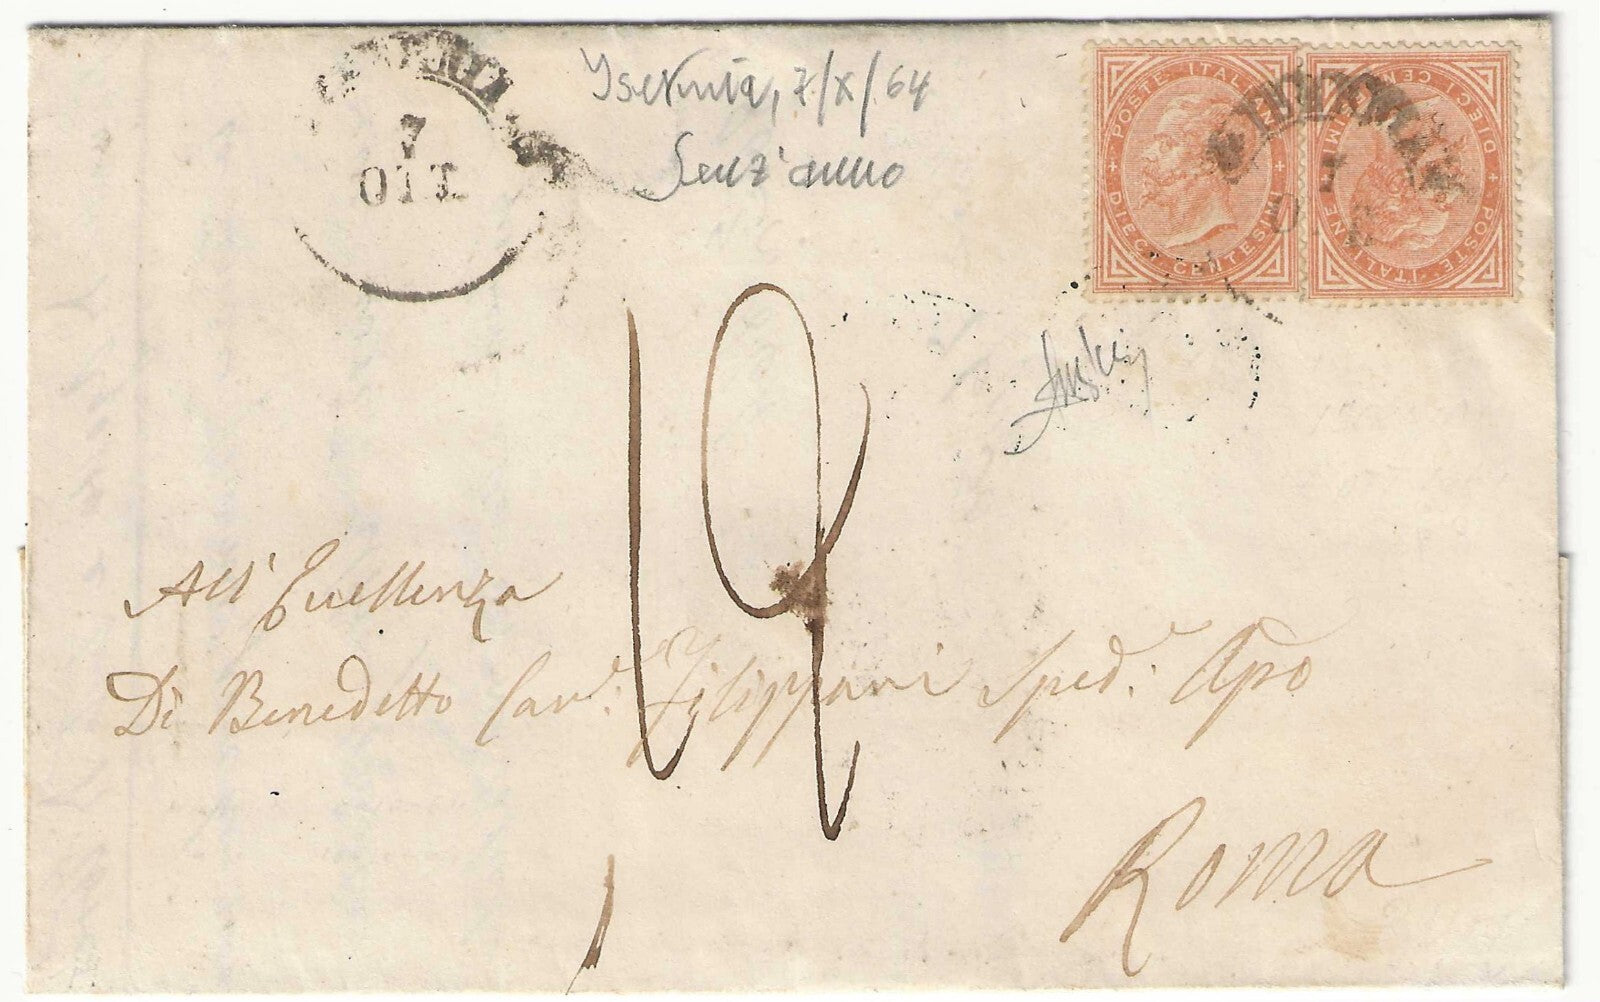 7
OTT.
Isernia, 7/X/64
Senz'anno
POSTE ITALIANE
DIECI CENTESIMI
POSTE ITALIANE
DIECI CENTESIMI
19
All' Eccellenza
Di Benedetto Cav.e: Filippani Sped.e: Apso
Roma